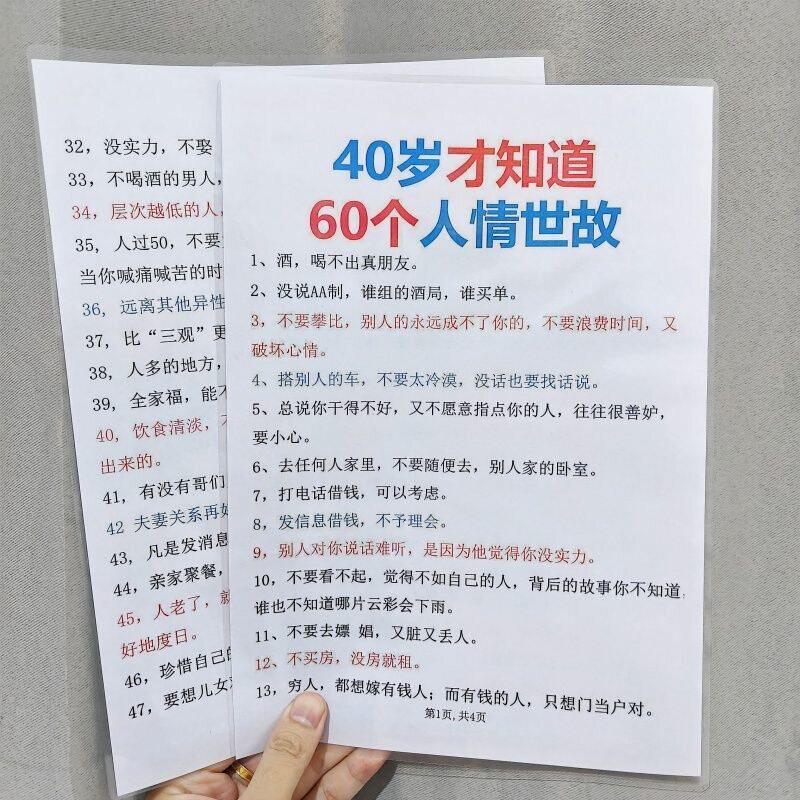 40岁才知道
60个人情世故
1、酒，喝不出真朋友。
2、没说AA制，谁组的酒局，谁买单。
3，不要攀比，别人的永远成不了你的，不要浪费时间，又
破坏心情。
4、搭别人的车，不要太冷漠，没话也要找话说。
5、总说你干得不好，又不愿意指点你的人，往往很善妒，
要小心。
6、去任何人家里，不要随便去，别人家的卧室。
7，打电话借钱，可以考虑。
8，发信息借钱，不予理会。
9，别人对你说话难听，是因为他觉得你没实力。
10，不要看不起，觉得不如自己的人，背后的故事你不知道，
谁也不知道哪片云彩会下雨。
11、不要去嫖 娼，又脏又丢人。
12、不买房，没房就租。
13，穷人，都想嫁有钱人；而有钱的人，只想门当户对。
第1页,共4页
32，没实力，不娶
33，不喝酒的男人，
34，层次越低的人，
35，人过50，不要
当你喊痛喊苦的时
36，远离其他异性
37，比“三观”更
38，人多的地方，
39，全家福，能不
40，饮食清淡，
出来的。
41，有没有哥们
42 夫妻关系再好
43，凡是发消息
44，亲家聚餐，
45，人老了，就
好地度日。
46，珍惜自己的
47，要想儿女